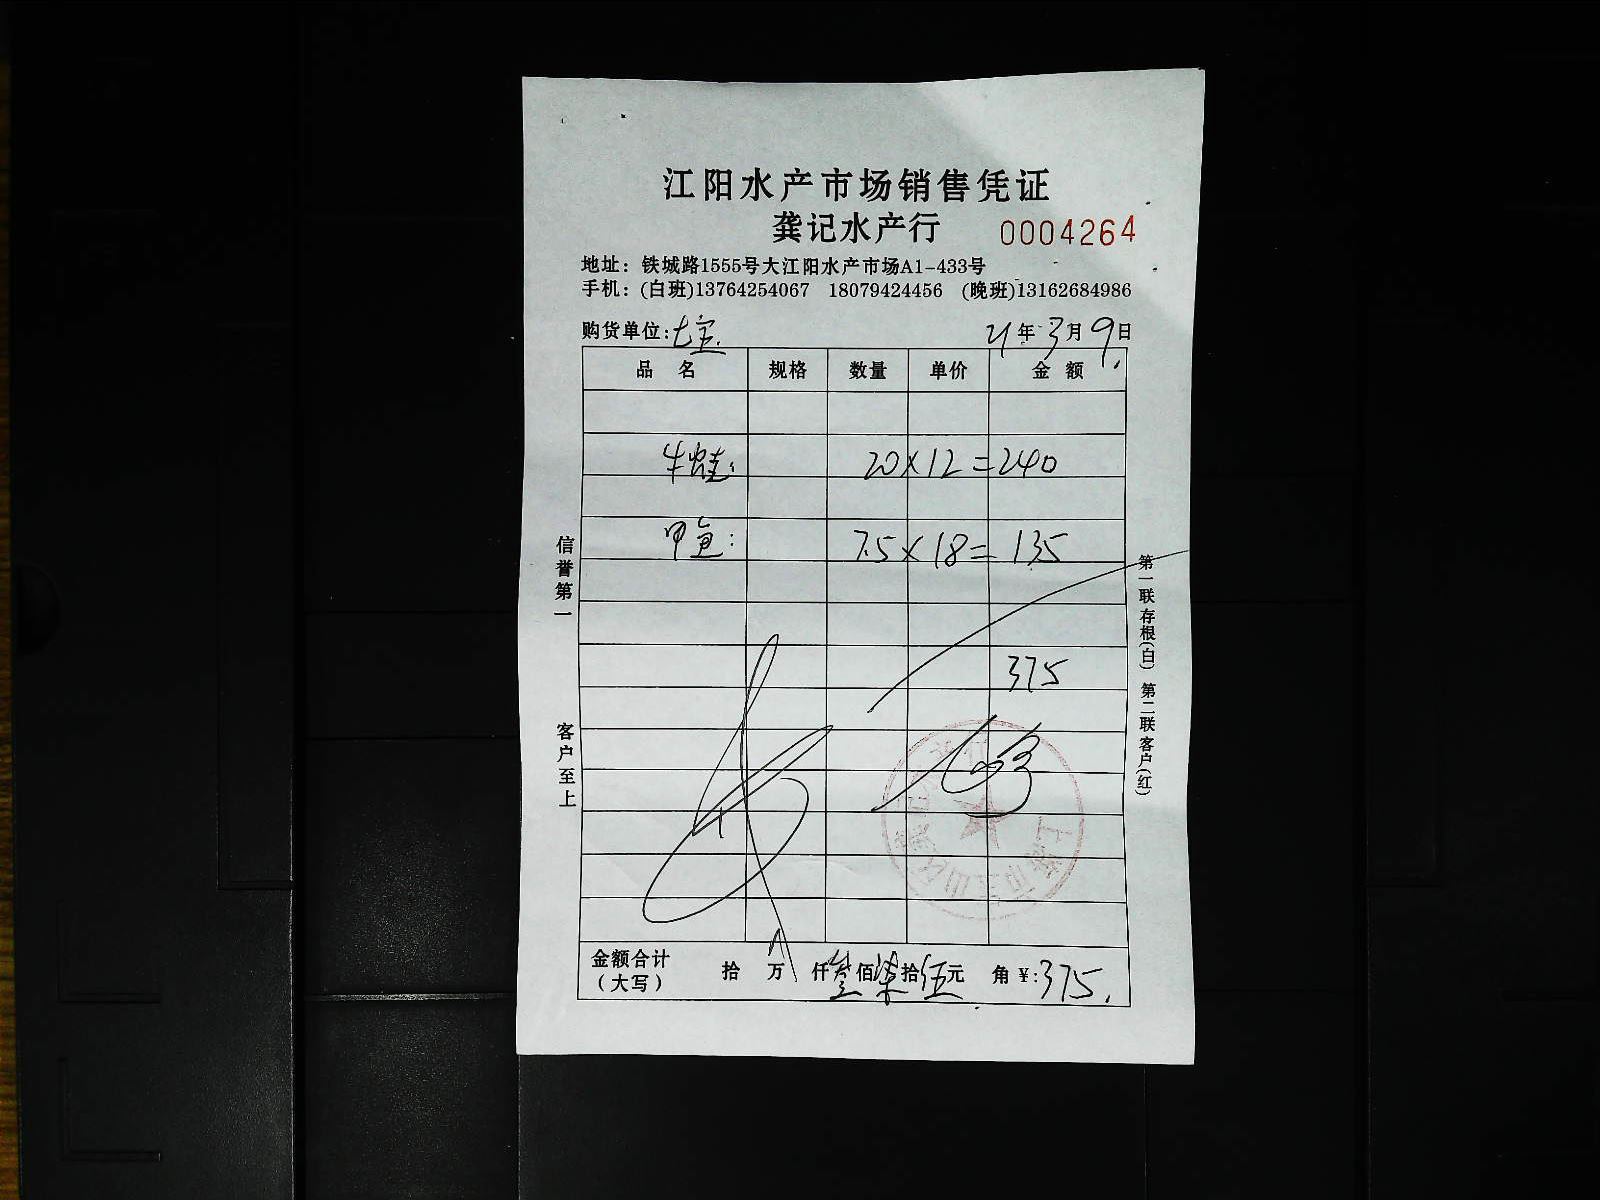 江阳水产市场销售凭证
龚记水产行 0004264
地址：铁城路1555号大江阳水产市场A1-433号
手机：(白班)13764254067 18079424456 (晚班)13162684986
购货单位：七宝. 21年3月9日
品名 规格 数量 单价 金额
牛蛙： 20×12=240
甲鱼： 7.5×18=135
375
信誉第一
客户至上
第一联存根(白) 第二联客户(红)
金额合计 拾 万 仟叁佰柒拾伍元 角 ¥:375.
（大写）